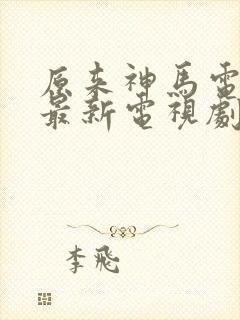 原来神馬電
最新電視劇
李飛